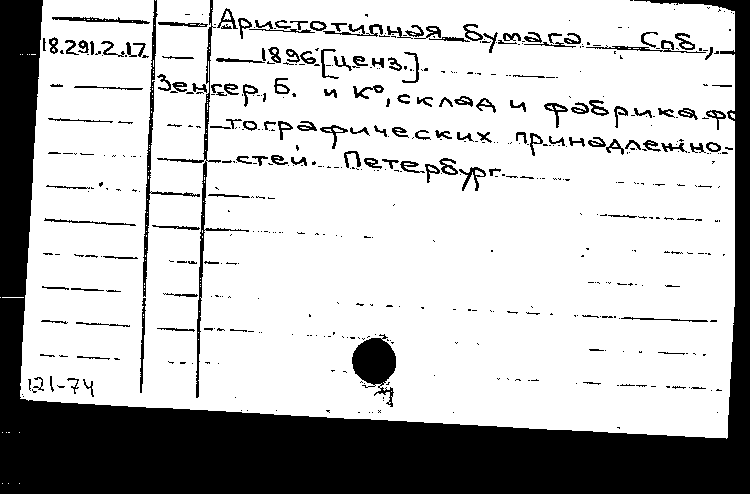 Аристотипная бумага. Спб.,
18.291.2.17
1896 [ценз.].
Зенгер, Б. и К°, склад и фабрика фо
тографических принадлежно-
стей. Петербург.
121-74